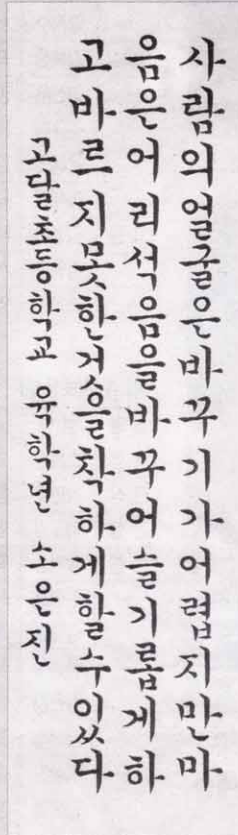 사람의얼굴은바꾸기가어렵지만마
음은어리석음을바꾸어슬기롭게하
고바르지못한거슬착하게할수이쓰다
고달초등학교 육학년 소은진